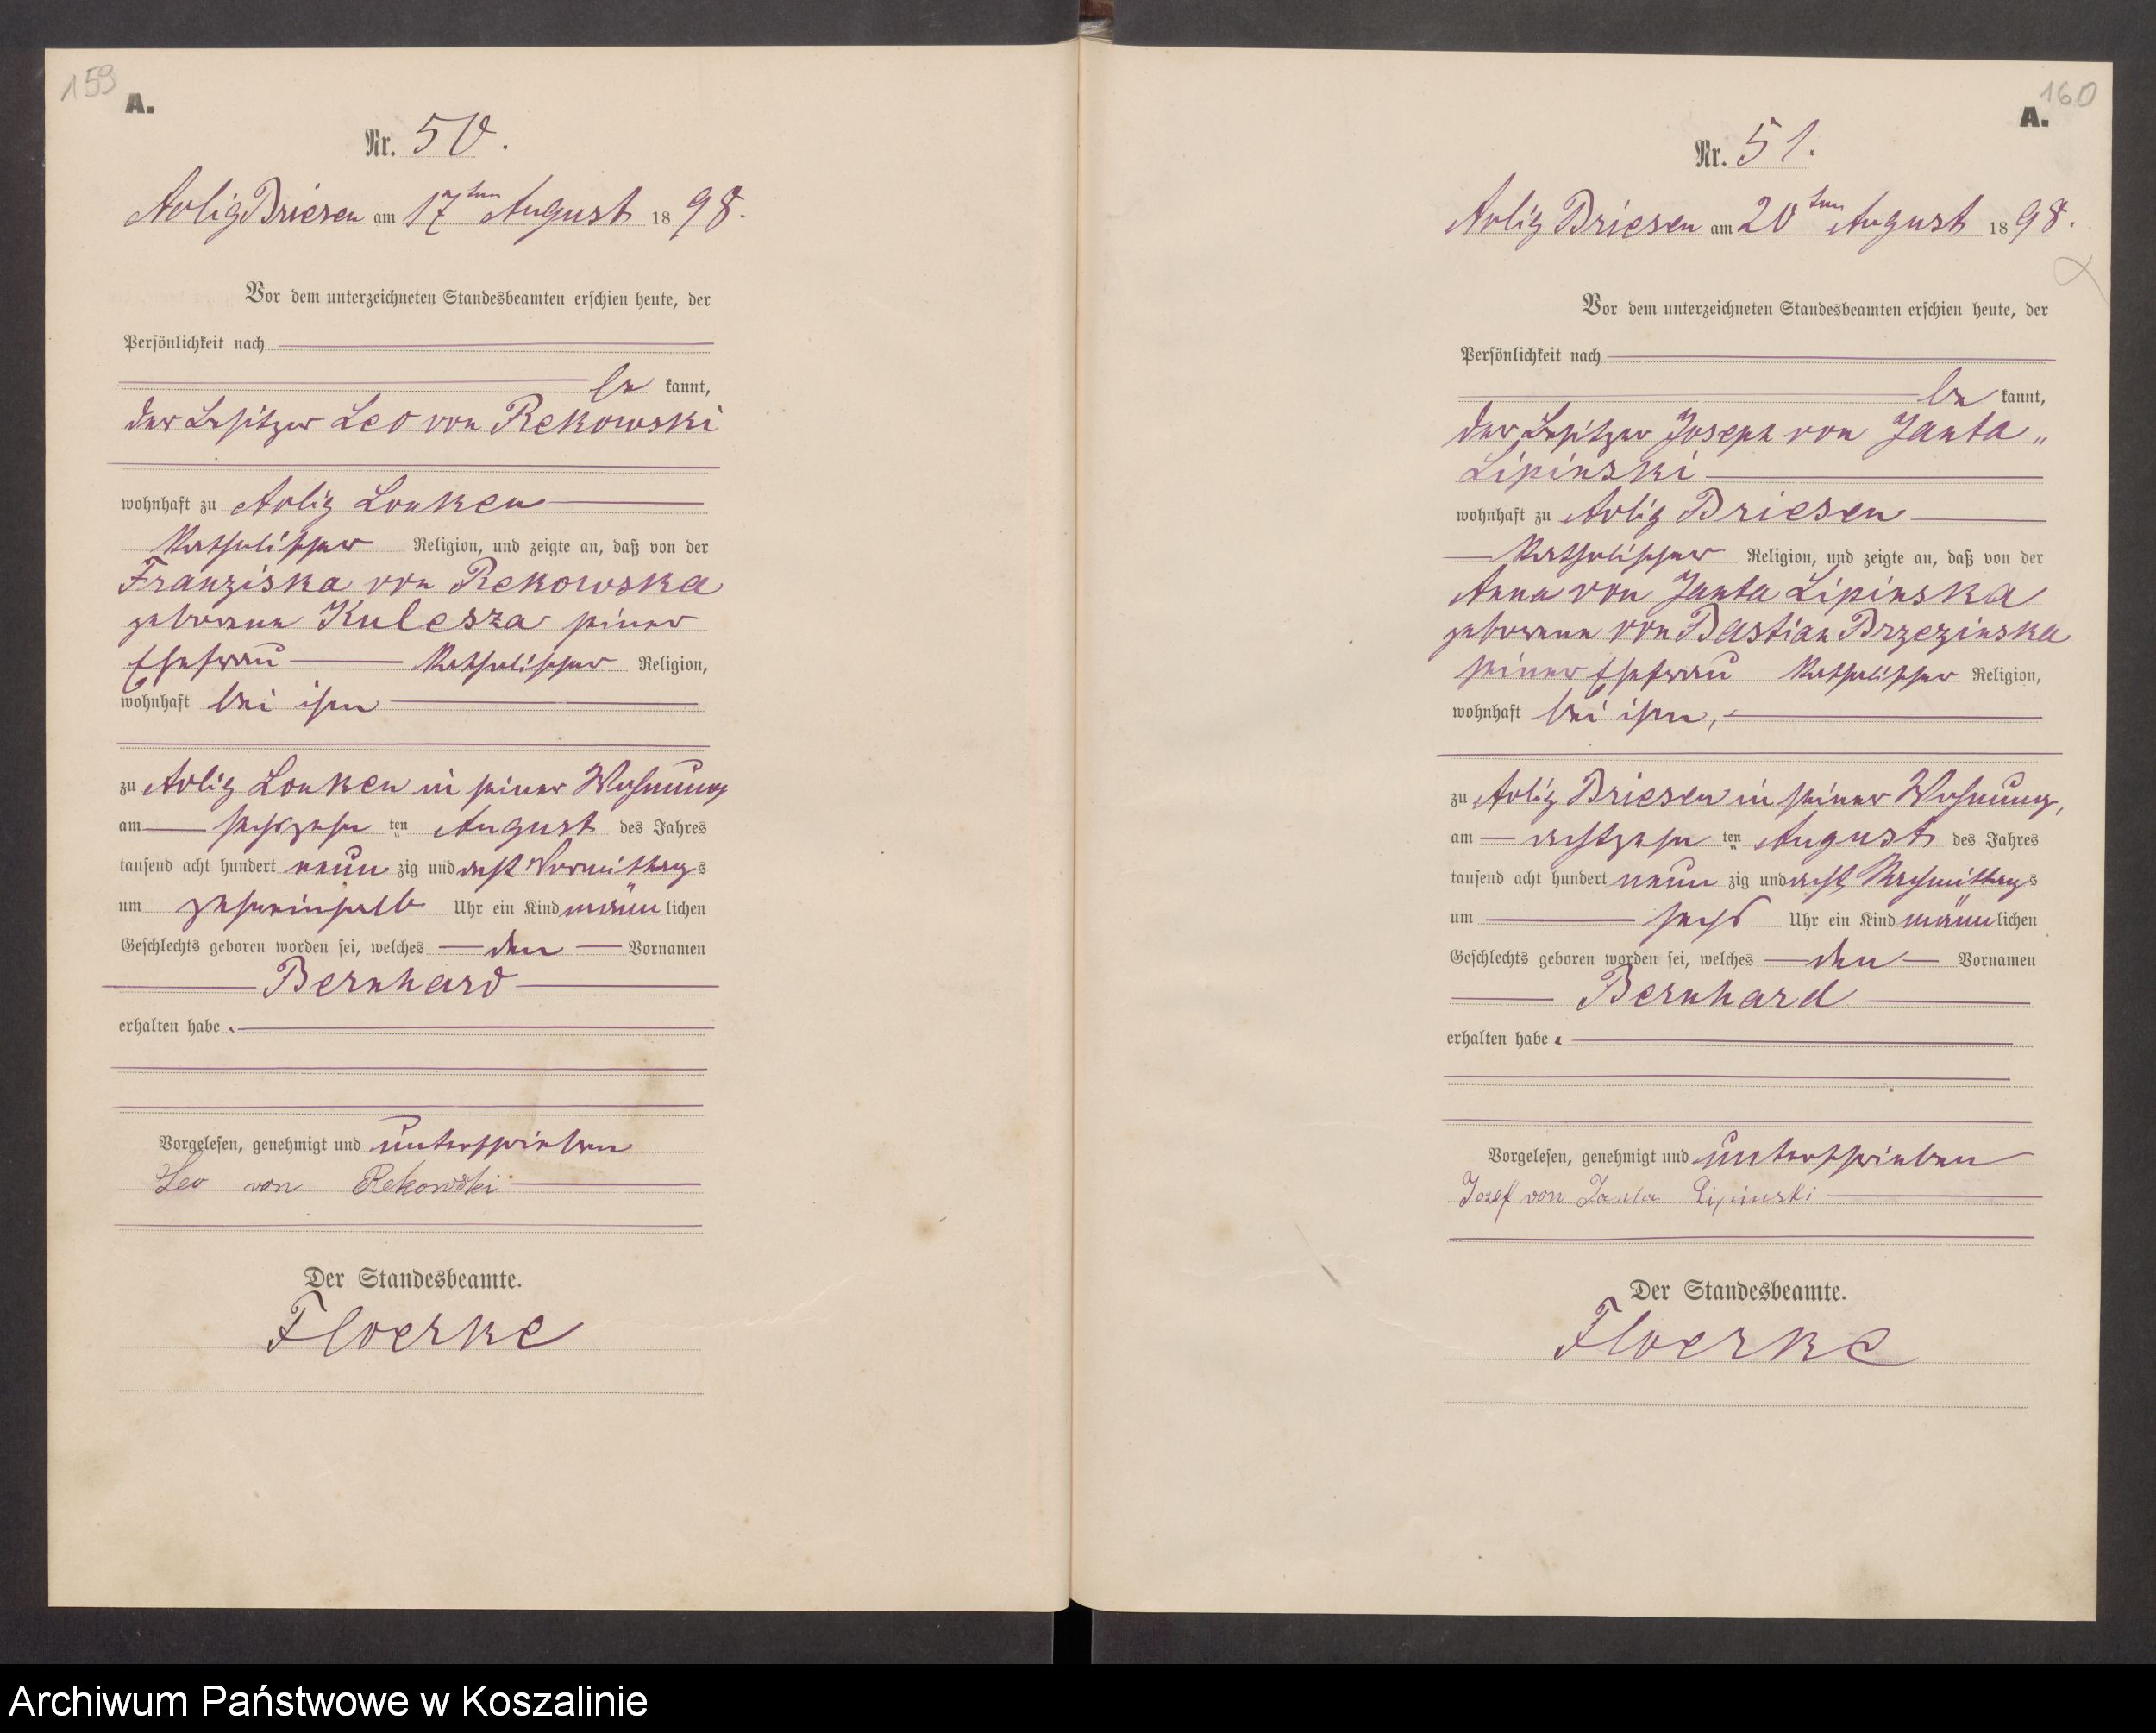 159
A.
Nr. 50.
Adlig Briesen am 17ten August 1898.
Vor dem unterzeichneten Standesbeamten erschien heute, der
Persönlichkeit nach
be kannt,
der Besitzer Leo von Rekowski
wohnhaft zu Adlig Lonken
katholischer Religion, und zeigte an, daß von der
Franziska von Rekowska
geborene Kulesza seiner
Ehefrau katholischer Religion,
wohnhaft bei ihm
zu Adlig Lonken in seiner Wohnung
am sechszehn ten August des Jahres
tausend acht hundert neun zig und acht Vormittags
um zehneinhalb Uhr ein Kind männlichen
Geschlechts geboren worden sei, welches den Vornamen
Bernhard
erhalten habe.
Vorgelesen, genehmigt und unterschrieben
Leo von Rekowski
Der Standesbeamte.
Floerke
160
A.
Nr. 51.
Adlig Briesen am 20ten August 1898.
Vor dem unterzeichneten Standesbeamten erschien heute, der
Persönlichkeit nach
be kannt,
der Besitzer Joseph von Janta "
Lipinski
wohnhaft zu Adlig Briesen
katholischer Religion, und zeigte an, daß von der
Anna von Janta Lipinska
geborene von Bastian Brzezinska
seiner Ehefrau katholischer Religion,
wohnhaft bei ihm,
zu Adlig Briesen in seiner Wohnung,
am achtzehn ten August des Jahres
tausend acht hundert neun zig und acht Nachmittags
um sechs Uhr ein Kind männlichen
Geschlechts geboren worden sei, welches den Vornamen
Bernhard
erhalten habe.
Vorgelesen, genehmigt und unterschrieben
Jozef von Janta Lipinski
Der Standesbeamte.
Floerke
Archiwum Państwowe w Koszalinie